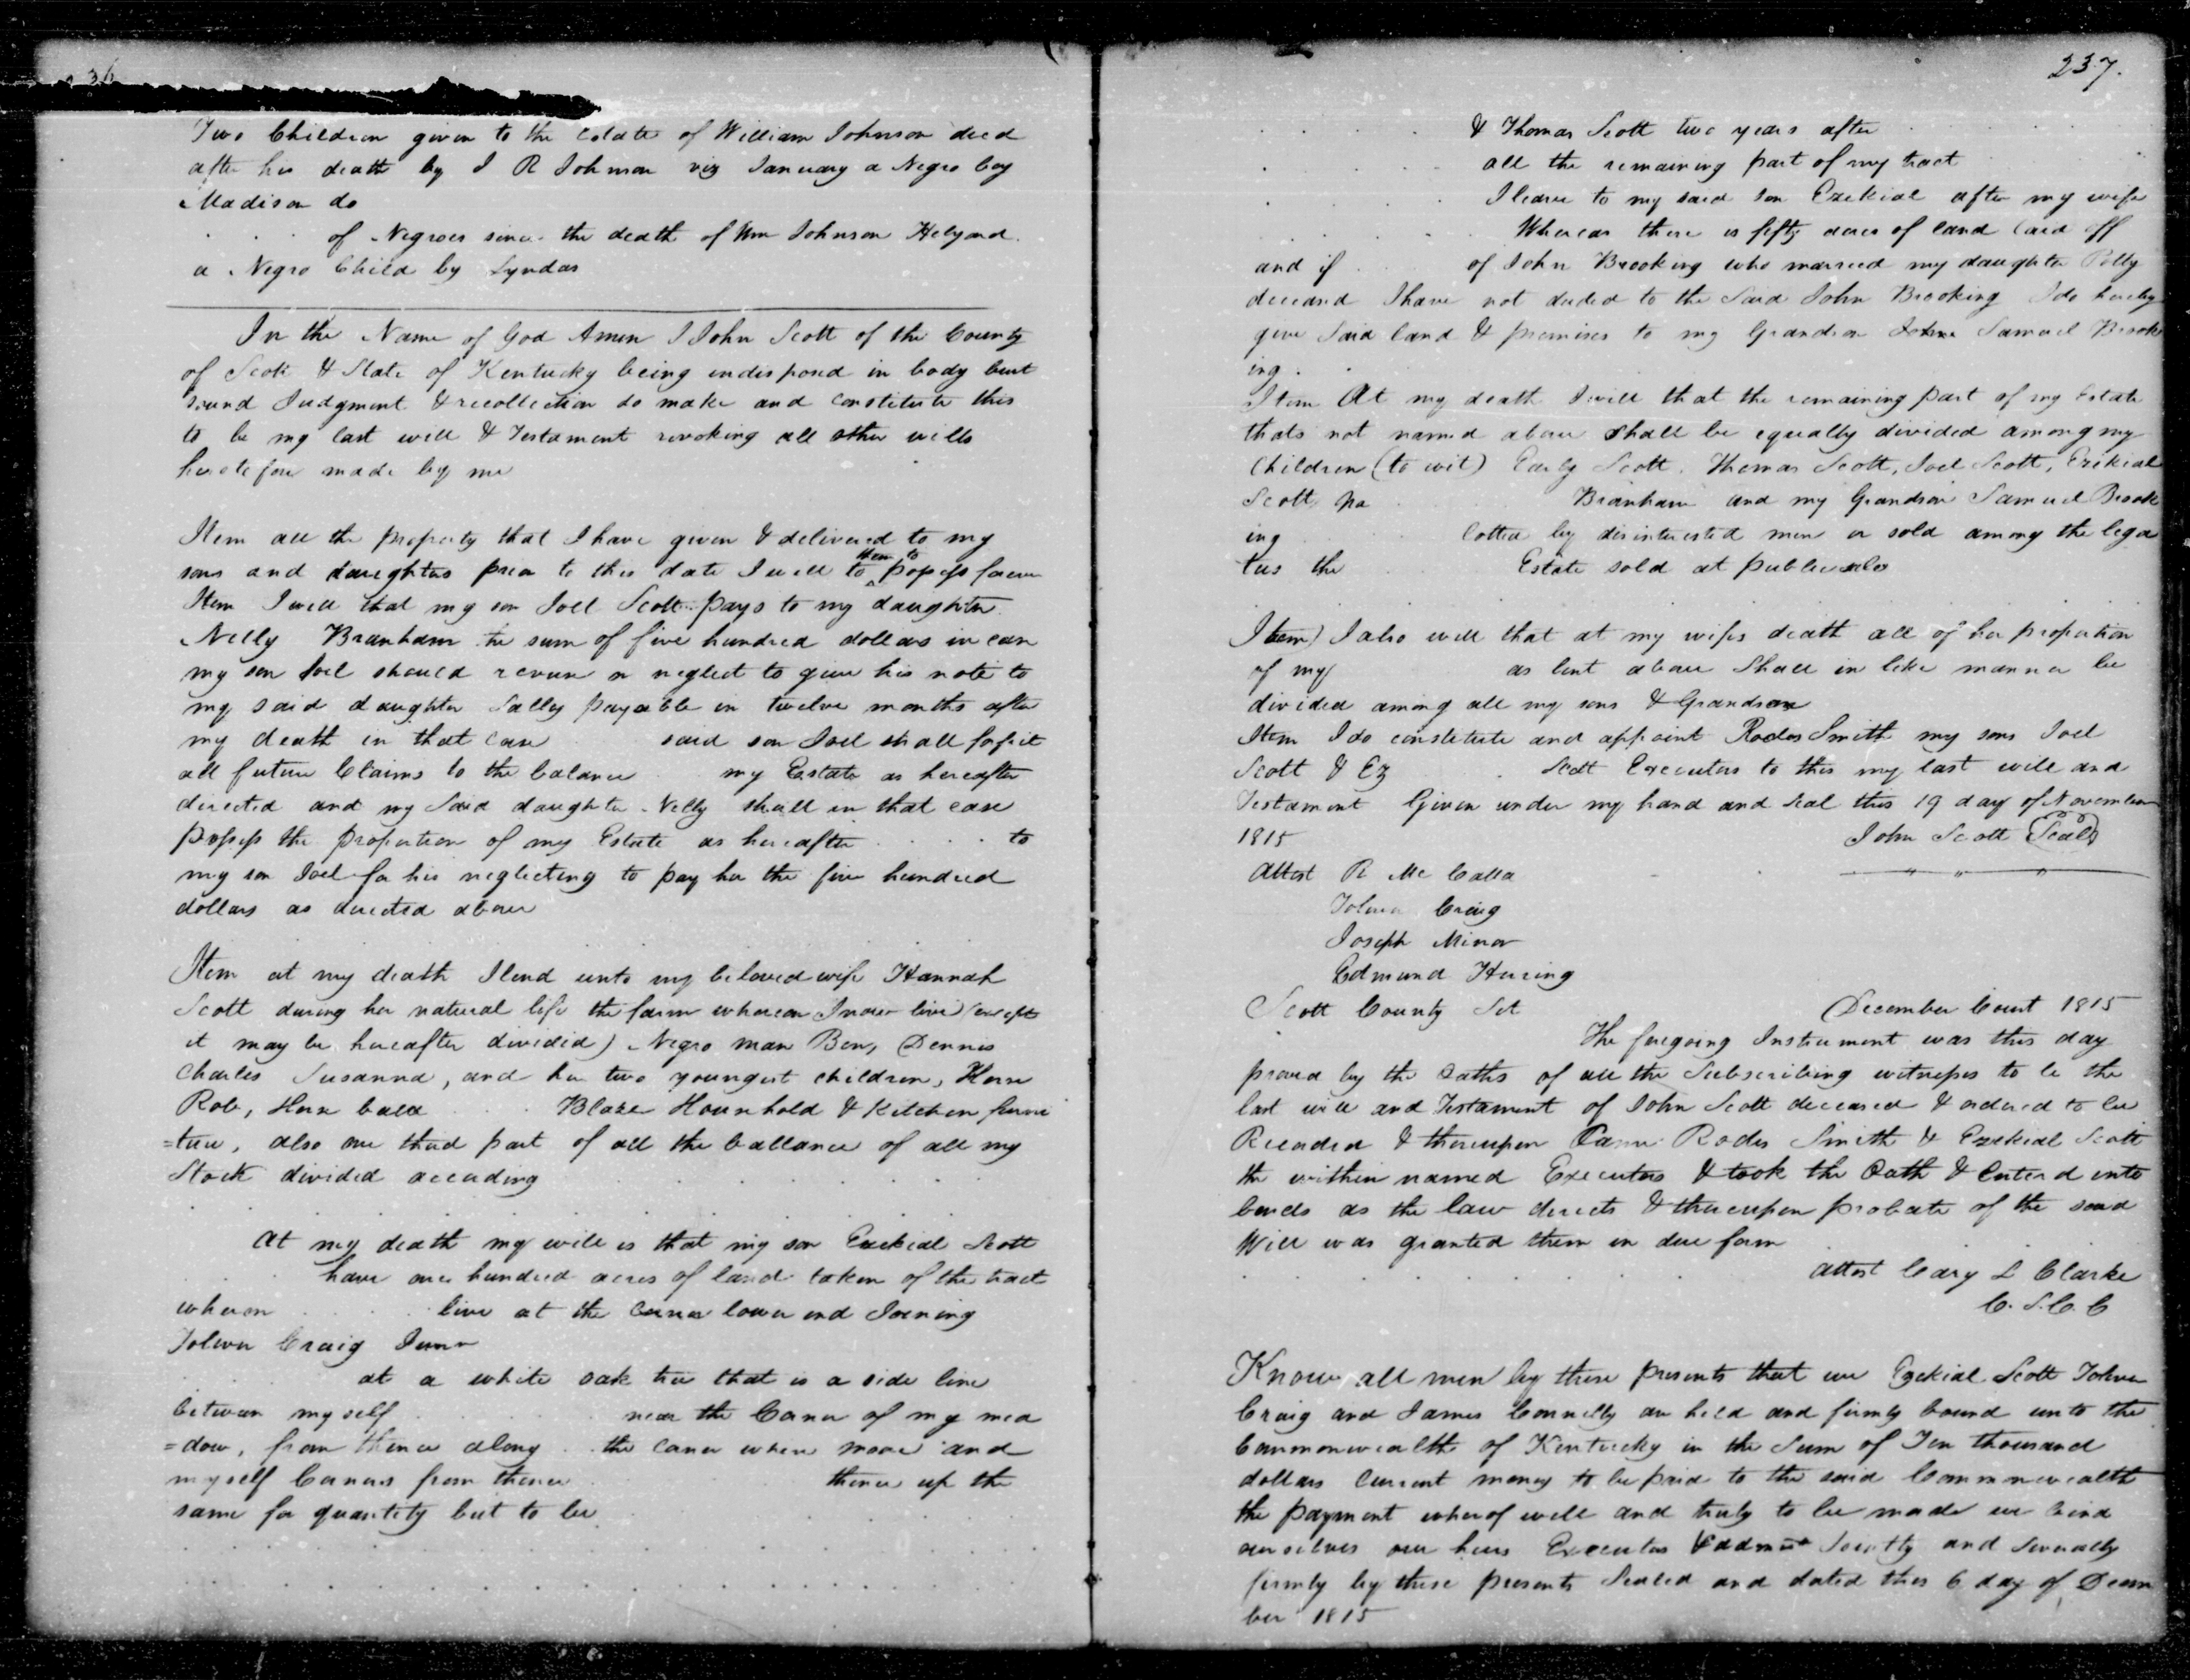 36
Two Children given to the Estate of William Johnson decd
after his death by J R Johnson viz January a Negro boy
Madison do
. . . of Negroes since the death of Wm Johnson
a Negro Child by Lyndas
In the Name of God Amen I John Scott of the County
of Scott & State of Kentucky being indisposed in body but
sound Judgment & recollection do make and constitute this
to be my last will & Testament revoking all other wills
heretofore made by me
Item all the property that I have given & delivered to my
sons and daughters prior to this date I will to them to possess forever
Item I will that my son Joel Scott pays to my daughter
Nelly Branham the sum of five hundred dollars in case
my son Joel should or neglect to give his note to
my said daughter Sally payable in twelve months after
my death in that case said son Joel shall forfeit
all future Claims to the balance my Estate as hereafter
directed and my Said daughter Nelly shall in that case
possess the proportion of my Estate as hereafter . . . . to
my son Joel for his neglecting to pay her the five hundred
dollars as directed above
Item at my death I lend unto my beloved wife Hannah
Scott during her natural life the farm whereon I now live (except
it may be hereafter divided) Negro man Ben, Dennis
Charles Susanna, and her two youngest children, Horse
Rob, Horse Calld . . . Blaze Household & Kitchen furni
=ture, also one third part of all the ballance of all my
Stock divided according
At my death my will is that my son Ezekial Scott
. . . have one hundred acres of land taken of the tract
whereon . . . . live at the lower end Joining
Tolever Craig Junr
. . . at a white oak tree that is a side line
between myself . . . near the Corner of my mea
=dow, from thence along . . the corner where moore and
myself Corners from thence . . . thence up the
same for quantity but to be
237.
. . . . & Thomas Scott two years after
. . . . all the remaining part of my tract
. . . . I leave to my said son Ezekial after my wife
. . . . Whereas there is fifty acres of land laid off
and if . . . of John Brooking who married my daughter Polly
deceased I have not deeded to the Said John Brooking I do hereby
give Said land & premises to my Grandson Samuel Brook
ing .
Item At my death I will that the remaining part of my Estate
thats not named above shall be equally divided among my
Children (to wit) Early Scott, Thomas Scott, Joel Scott, Ezikial
Scott, Na . . . Branham and my Grandson Samuel Brook
ing . . . lotted by disinterested men or sold among the lega
tees the . . . Estate sold at public sale
Item) I also will that at my wifes death all of her proportion
of my as lent above Shall in like manner be
divided among all my sons & Grandson
Item I do constitute and appoint Rodes Smith my sons Joel
Scott & Ez . . . Scott Executors to this my last will and
Testament Given under my hand and Seal this 19 day of November
1815 John Scott (Seal)
Attest R Mc Calla
Tolever Craig
Joseph Minor
Edmund Herring
Scott County Sct December Court 1815
The foregoing Instrument was this day
proved by the Oaths of all the Subscribing witnesses to be the
last will and Testament of John Scott deceased & ordered to be
Recorded & thereupon Came Rodes Smith & Ezekial Scott
the within named Executors & took the Oath & Entered into
bonds as the law directs & thereupon probate of the said
Will was granted them in due form
attest Cary L Clarke
C. S. C. C
Know all men by these presents that we Ezekial Scott Tolever
Craig and James Connelly are held and firmly bound unto the
Commonwealth of Kentucky in the Sum of Ten thousand
dollars Current money to be paid to the said Commonwealth
the payment whereof well and truly to be made we bind
ourselves our heirs Executors & admrs Jointly and Severally
firmly by these presents Sealed and dated this 6 day of Decem
ber 1815